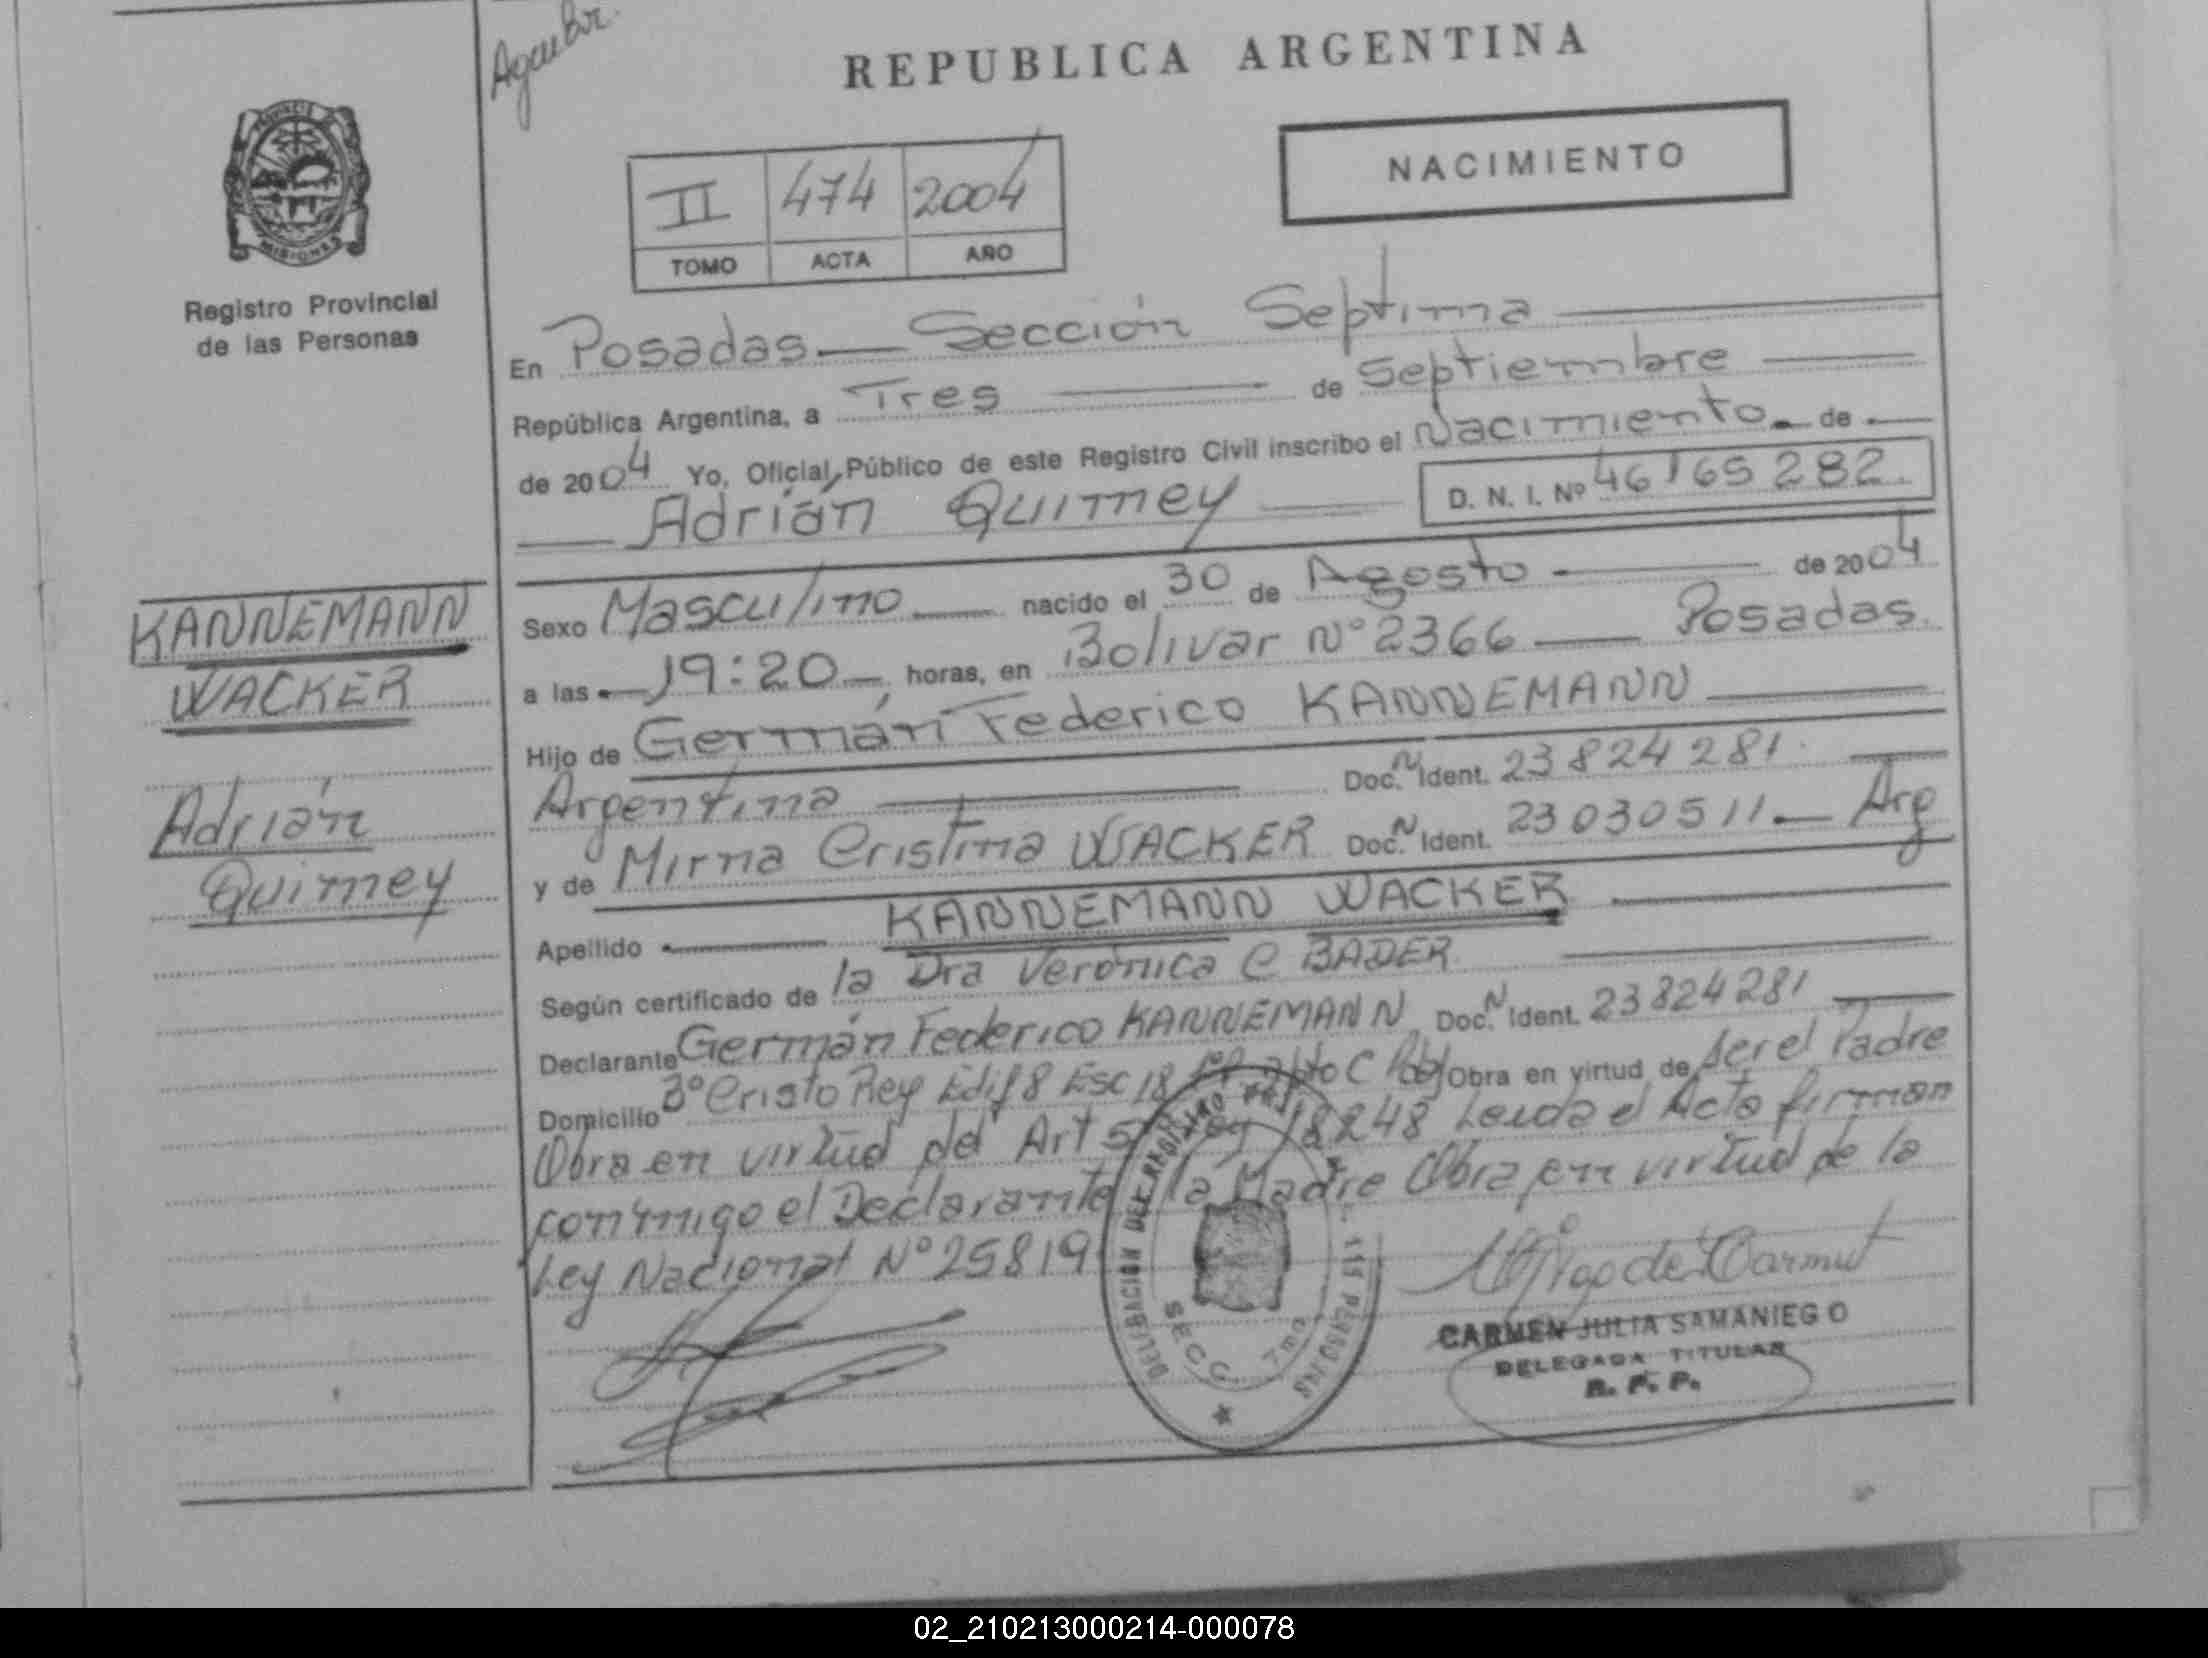 REPUBLICA ARGENTINA
PROVINCIA DE
MISIONES
Registro Provincial
de las Personas
NACIMIENTO
II 474 2004
TOMO ACTA AÑO
En Posadas — Sección Septima
República Argentina, a Tres de Septiembre
de 2004 Yo, Oficial Público de este Registro Civil inscribo el Nacimiento de
Adrián Quimey D. N. I. Nº 46165282
KANNEMANN
WACKER
Adrián
Quimey
Sexo Masculino nacido el 30 de Agosto de 2004
a las 19:20 horas, en Bolivar Nº 2366 — Posadas.
Hijo de Germán Federico KANNEMANN
Argentina Doc. N Ident. 23824281
y de Mirna Cristina WACKER Doc. N Ident. 23030511 — Arg
Apellido KANNEMANN WACKER
Según certificado de la Dra Verónica C BADER
Declarante Germán Federico KANNEMANN Doc. N Ident. 23824281
Domicilio 3º Cristo Rey Edif 8 Esc 18 C Obra en virtud de ser el Padre
Obra en virtud del Art 5 Ley 18248 Leida el Acta firman
conmigo el Declarante la Madre Obra en virtud de la
Ley Nacional Nº 25819
DELEGACION DEL REGISTRO PERSONAS
SECC. 7ma
CARMEN JULIA SAMANIEGO
DELEGADA TITULAR
R. P. P.
02_210213000214-000078